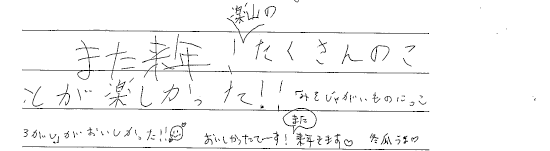 楽山の
また来年!たくさんのこ
とが楽しかった!!「みそじゃがいものにっこ
ろがし」がおいしかった!! おいしかったでーす!また来年きます♡ 冬瓜うま♡